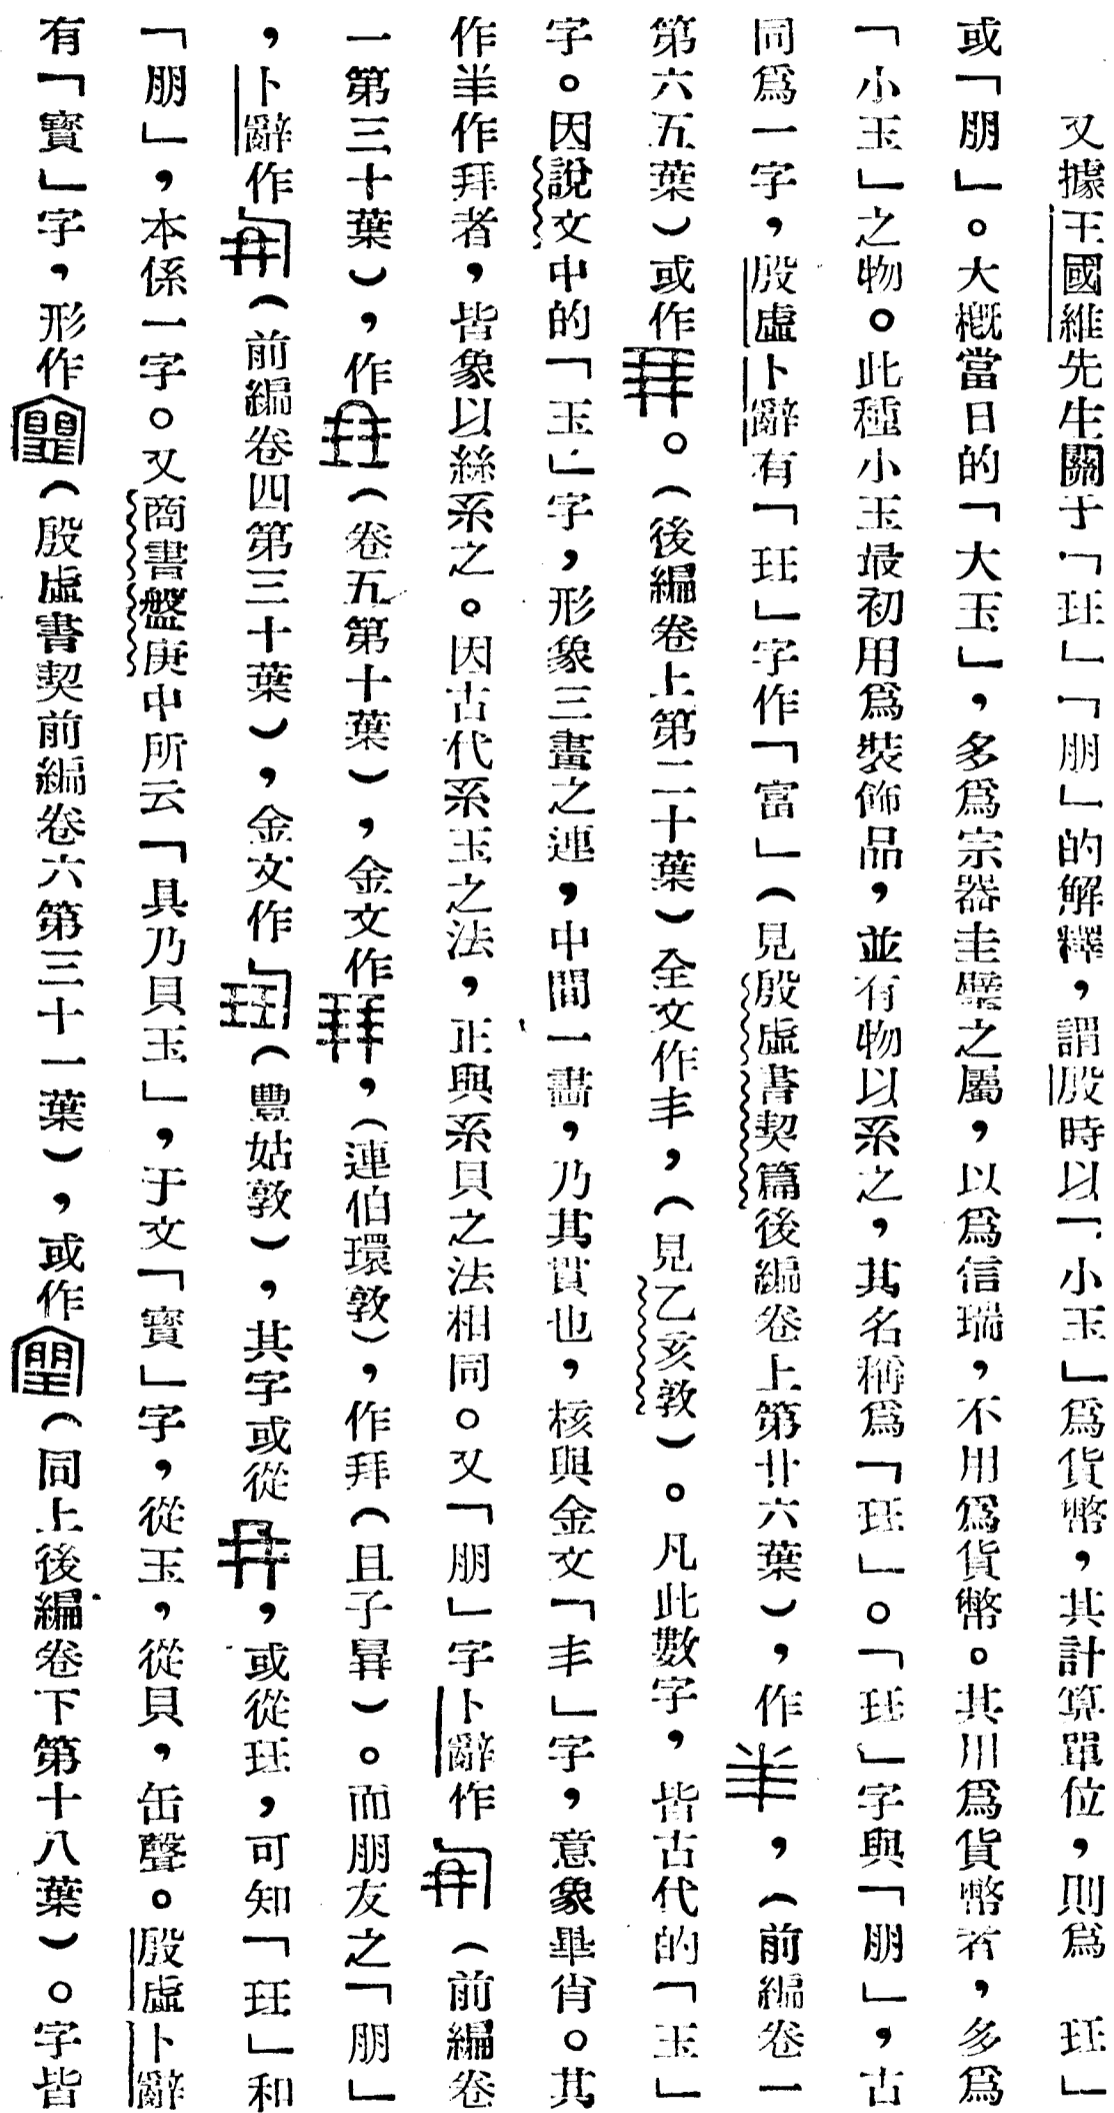 又據王國維先生關于「玨」「朋」的解釋，謂殷時以「小玉」爲貨幣，其計算單位，則爲　玨」
或「朋」。大概當日的「大玉」，多爲宗器圭璧之屬，以爲信瑞，不用爲貨幣。其用爲貨幣者，多爲
「小玉」之物。此種小玉最初用爲裝飾品，並有物以系之，其名稱爲「玨」。「玨」字與「朋」，古
同爲一字，殷虛卜辭有「玨」字作「富」（見殷虛書契篇後編卷上第廿六葉），作，（前編卷一
第六五葉）或作。（後編卷上第二十葉）全文作丰，（見乙亥敦）。凡此數字，皆古代的「玉」
字。因說文中的「玉」字，形象三畫之連，中間一畫，乃其貫也，核與金文「丰」字，意象畢肖。其
作羊作拜者，皆象以絲系之。因古代系玉之法，正與系貝之法相同。又「朋」字卜辭作（前編卷
一第三十葉），作（卷五第十葉），金文作，（連伯環敦），作拜（且子彝）。而朋友之「朋」
，卜辭作（前編卷四第三十葉），金文作（豐姑敦），其字或從，或從玨，可知「玨」和
「朋」，本係一字。又商書盤庚中所云「具乃貝玉」，于文「寶」字，從玉，從貝，缶聲。殷虛卜辭
有「寶」字，形作（殷虛書契前編卷六第三十一葉），或作（同上後編卷下第十八葉）。字皆